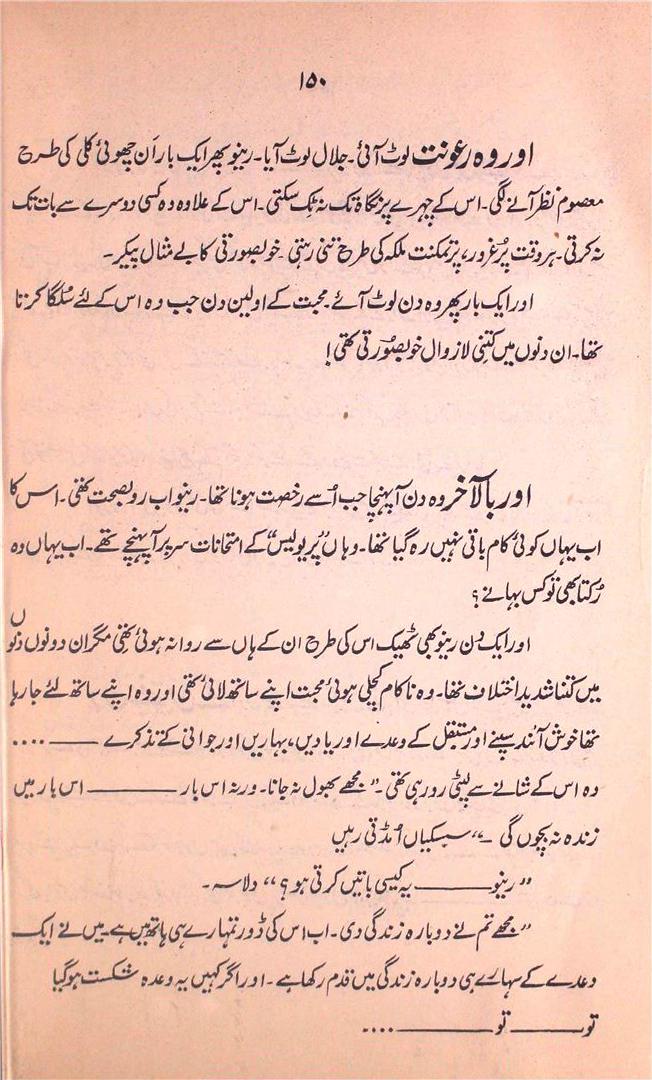 ۱۵۰
اور وہ رعونت لوٹ آئی۔ جلال لوٹ آیا۔ رینو پھر ایک بار اَن چھوئی کلی کی طرح
معصوم نظر آنے لگی۔ اس کے چہرے پر نگاہ تک نہ ٹِک سکتی۔ اس کے علاوہ وہ کسی دوسرے سے بات تک
نہ کرتی۔ ہر وقت پُرغرور، پُرتمکنت ملکہ کی طرح تنی رہتی۔ خوبصورتی کا بے مثال پیکر۔
اور ایک بار پھر وہ دن لوٹ آئے۔ محبت کے اولین دن جب وہ اس کے لئے سُلگا کرتا
تھا۔ ان دنوں میں کتنی لازوال خوبصورتی تھی!
اور بالآخر وہ دن آ پہنچا جب اُسے رخصت ہونا تھا۔ رینو اب رو بصحت تھی۔ اس کا
اب یہاں کوئی کام باقی نہیں رہ گیا تھا۔ وہاں "پریولیس" کے امتحانات سر پر آ پہنچے تھے۔ اب یہاں وہ
رُکتا بھی تو کس بہانے؟
اور ایک دن رینو بھی ٹھیک اس کی طرح ان کے ہاں سے روانہ ہوئی تھی مگر ان دونوں دنوں
میں کتنا شدید اختلاف تھا۔ وہ ناکام کچلی ہوئی محبت اپنے ساتھ لائی تھی اور وہ اپنے ساتھ لئے جا رہا
تھا خوش آئند سپنے اور مستقبل کے وعدے اور یادیں، بہاریں اور جوانی کے تذکرے ——— ....
وہ اس کے شانے سے لپٹی رو رہی تھی۔ "مجھے بھول نہ جانا۔ ورنہ اس بار ——— اس بار میں
زندہ نہ بچوں گی۔" سسکیاں اُمڈتی رہیں
"رینو ——— یہ کیسی باتیں کرتی ہو؟" دلاسہ۔
"مجھے تم نے دوبارہ زندگی دی۔ اب اس کی ڈور تمہارے ہی ہاتھ میں ہے۔ میں نے ایک
وعدے کے سہارے ہی دوبارہ زندگی میں قدم رکھا ہے۔ اور اگر کہیں یہ وعدہ شکست ہو گیا
تو ——— تو ——— ....